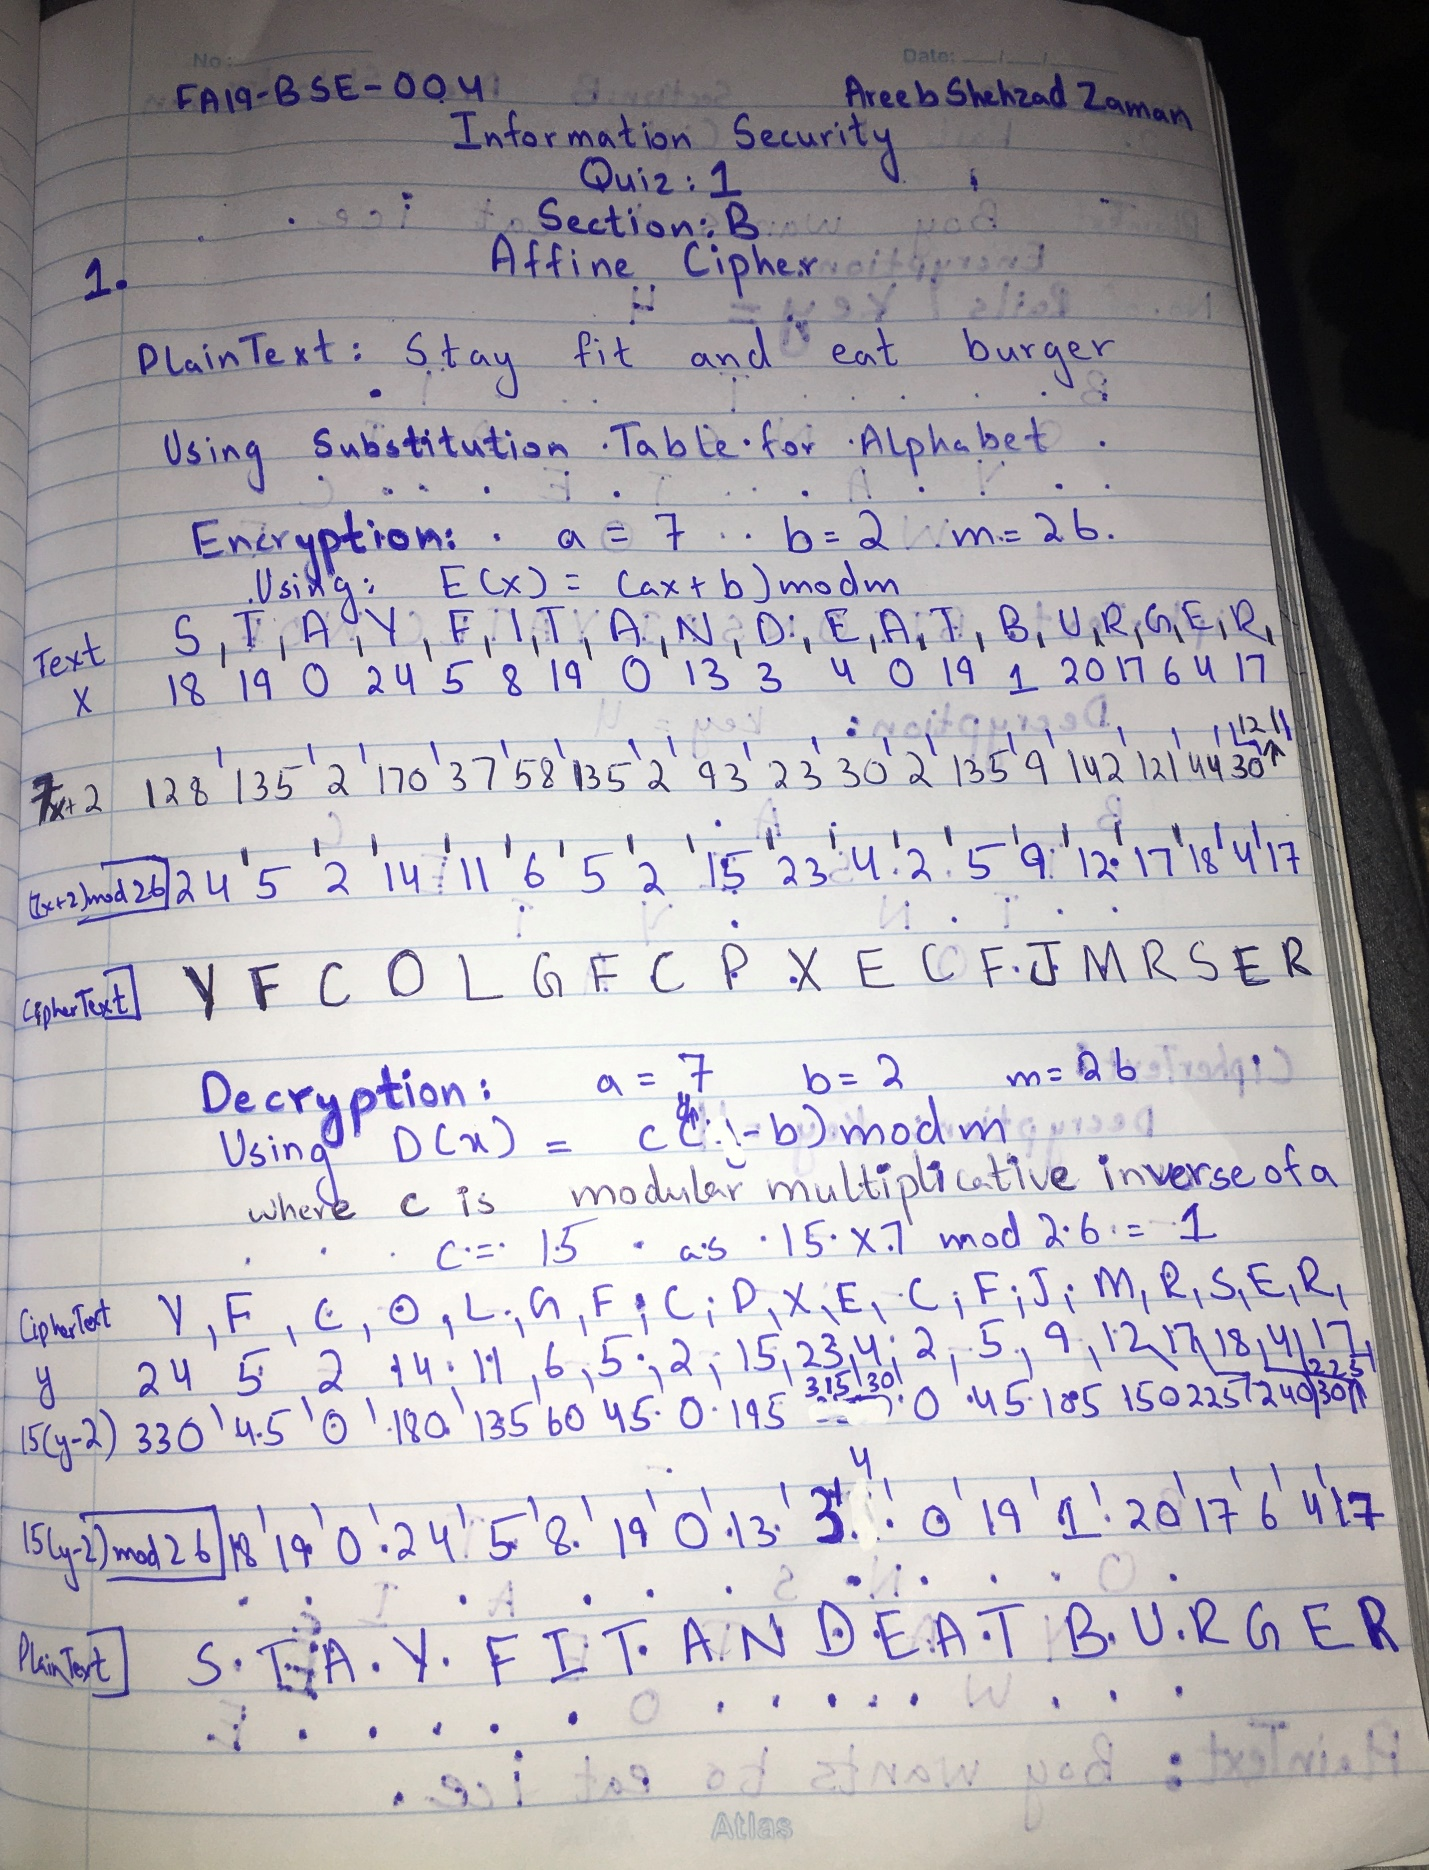 No:
Date: __/__/__
FA19-BSE-004 Areeb Shehzad Zaman
Information Security
Quiz: 1
Section: B
Affine Cipher
1.
PlainText: Stay fit and eat burger
Using Substitution Table for Alphabet
Encryption: a = 7 b = 2 m = 26.
Using: E(x) = (ax+b) mod m
Text S, T, A, Y, F, I, T, A, N, D, E, A, T, B, U, R, G, E, R,
X 18 19 0 24 5 8 19 0 13 3 4 0 19 1 20 17 6 4 17
12 1
7x+2 128 135 2 170 37 58 135 2 93 23 30 2 135 9 142 121 44 30
(7x+2) mod 26 24 5 2 14 11 6 5 2 15 23 4 2 5 9 12 17 18 4 17
CipherText Y F C O L G F C P X E C F J M R S E R
Decryption: a = 7 b = 2 m = 26
Using D(x) = c(y-b) mod m
where c is modular multiplicative inverse of a
c = 15 as 15 x 7 mod 26 = 1
CipherText Y, F, C, O, L, G, F, C, P, X, E, C, F, J, M, R, S, E, R,
y 24 5 2 14 11, 6, 5, 2, 15, 23, 4, 2, 5, 9, 12, 17, 18, 4, 17,
315 30 225
15(y-2) 330 45 0 180 135 60 45 0 195 0 45 105 150 225 240 30
4
15(y-2) mod 26 18 19 0 24 5 8 19 0 13 3 0 19 1 20 17 6 4 17
PlainText S T A Y F I T A N D E A T B U R G E R
Atlas